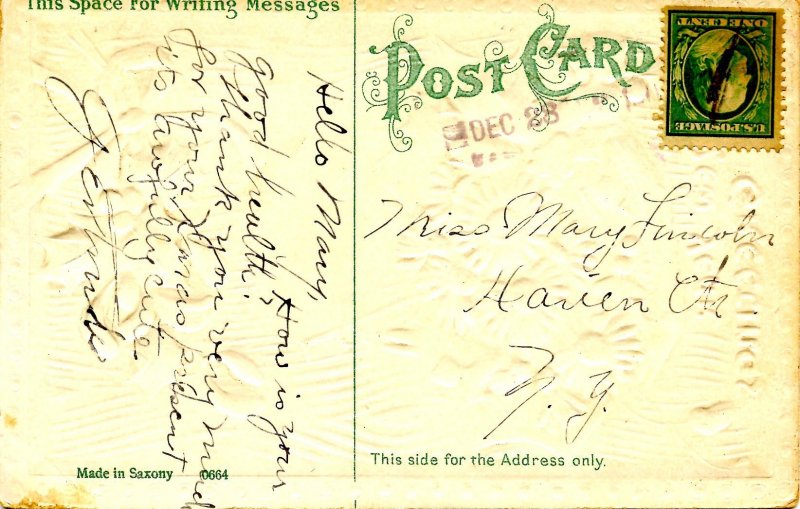 This Space For Writing Messages
Hello Mary,
How is your
good health?
Thank you very much
for your Xmas present
its awfully cute.
POST CARD
DEC 28
ONE CENT
U.S. POSTAGE
Miss Mary Lincoln
Haven Ctr.
N. Y.
This side for the Address only.
Made in Saxony 0664